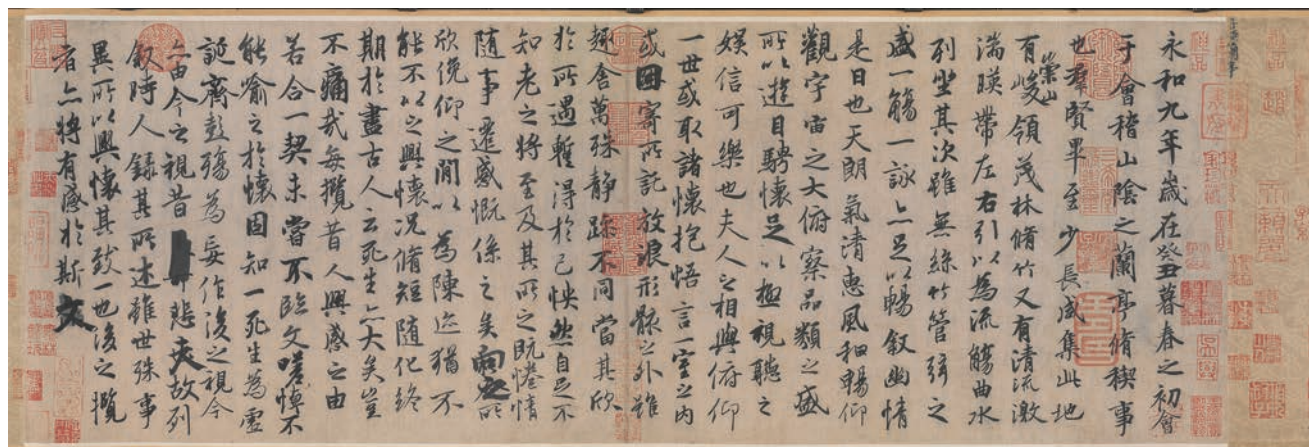 永和九年歲在癸丑暮春之初會
于會稽山陰之蘭亭脩禊事
也羣賢畢至少長咸集此地
有崇山峻領茂林脩竹又有清流激
湍暎帶左右引以為流觴曲水
列坐其次雖無絲竹管弦之
盛一觴一詠亦足以暢叙幽情
是日也天朗氣清惠風和暢仰
觀宇宙之大俯察品類之盛
所以遊目騁懷足以極視聽之
娛信可樂也夫人之相與俯仰
一世或取諸懷抱悟言一室之內
或因寄所託放浪形骸之外雖
趣舍萬殊靜躁不同當其欣
於所遇暫得於己怏然自足不
知老之將至及其所之既惓情
隨事遷感慨係之矣向之所
欣俛仰之間以為陳迹猶不
能不以之興懷況脩短隨化終
期於盡古人云死生亦大矣豈
不痛哉每攬昔人興感之由
若合一契未嘗不臨文嗟悼不
能喻之於懷固知一死生為虛
誕齊彭殤為妄作後之視今
亦由今之視昔悲夫故列
叙時人錄其所述雖世殊事
異所以興懷其致一也後之攬
者亦將有感於斯文